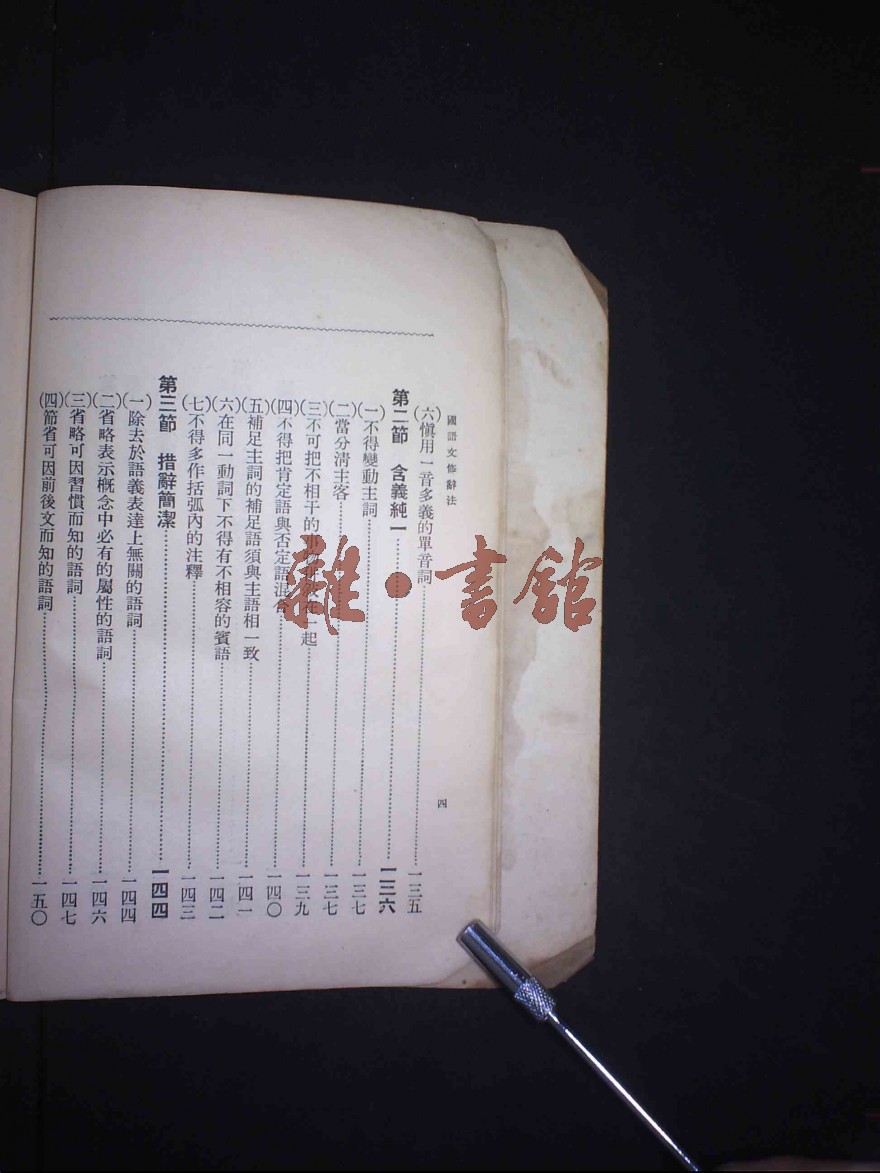 國語文修辭法
四
(六)慎用一音多義的單音詞……一三五
第二節 含義純一……一三六
(一)不得變動主詞……一三七
(二)當分清主客……一三七
(三)不可把不相干的事一起……一三九
(四)不得把肯定語與否定語混合……一四〇
(五)補足主詞的補足語須與主語相一致……一四一
(六)在同一動詞下不得有不相容的賓語……一四二
(七)不得多作括弧內的注釋……一四三
第三節 措辭簡潔……一四四
(一)除去於語義表達上無關的語詞……一四四
(二)省略表示概念中必有的屬性的語詞……一四六
(三)省略可因習慣而知的語詞……一四七
(四)節省可因前後文而知的語詞……一五〇
雜·書館